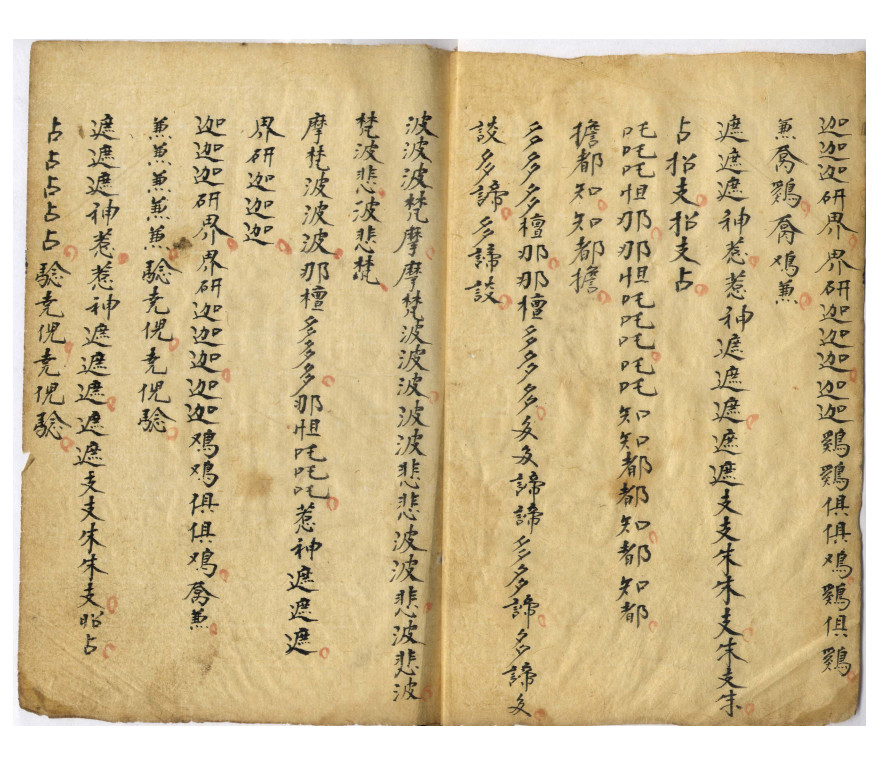 迦迦迦研界界研迦迦迦迦迦鷄鷄俱俱鳮鷄俱鷄
兼喬鷄喬鳮兼
遮遮遮神惹惹神遮遮遮遮遮支支朱朱支朱支朱
占招支招支占
吒吒吒怛那那怛吒吒吒吒吒知知都都知都知都
擔都知知都擔
多多多檀那那檀多多多多多多諦諦多多諦多諦多
談多諦多諦談
波波波梵摩摩梵波波波波波悲悲波波悲波悲波
梵波悲波悲梵
摩梵波波波那檀多多多那怛吒吒吒惹神遮遮遮
界研迦迦迦
迦迦迦研界界研迦迦迦迦迦鳮鳮俱俱鳮喬兼
兼兼兼兼兼騐尭倪尭倪騐
遮遮遮神惹惹神遮遮遮遮遮支支朱朱支昭占
占占占占占騐尭倪尭倪騐